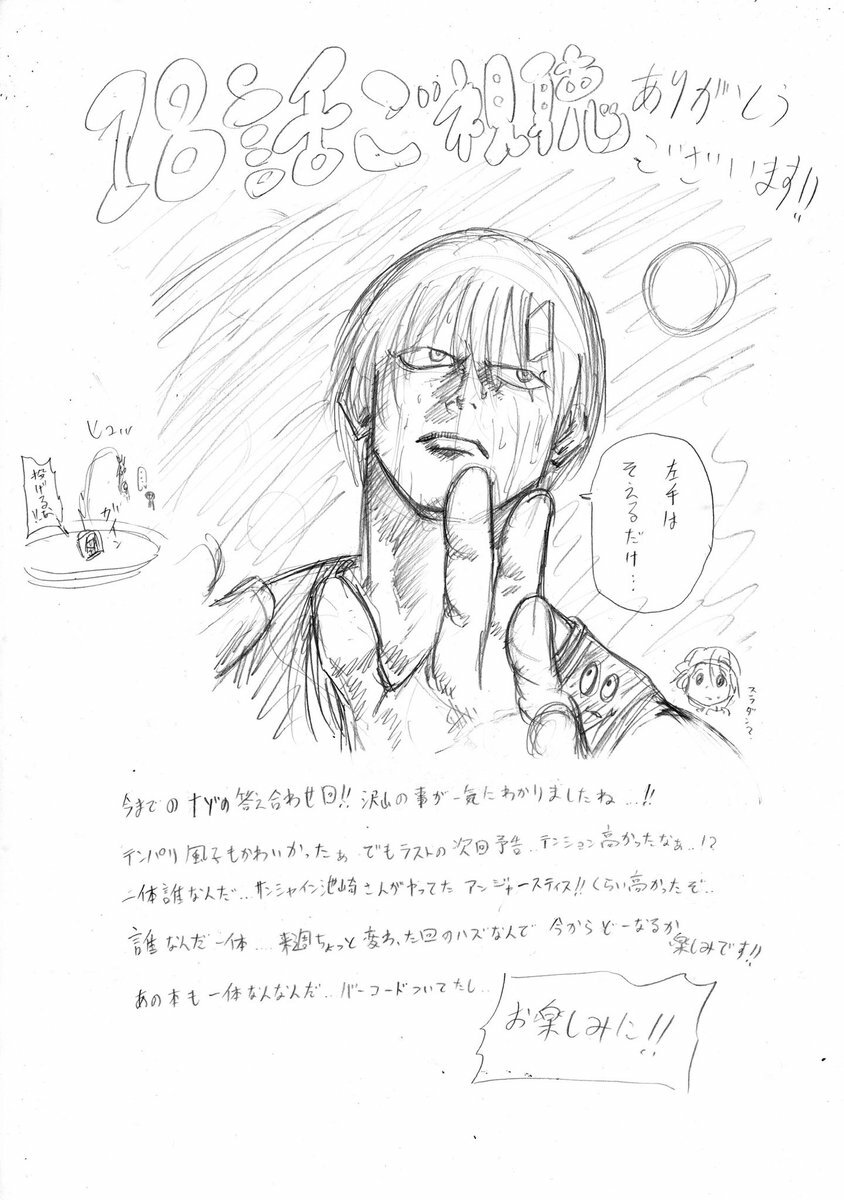 18話ご視聴
ありがとう
ございます!!
ヒュッ
投げるな!!
ガイン
風
左手は
そえるだけ…
スラダン?
今までのナゾの答え合わせ回!! 沢山の事が一気にわかりましたね…!!
テンパリ風子もかわいかったぁ でもラストの次回予告…テンション高かったなぁ…!?
一体誰なんだ…サンシャイン池崎さんがやってた アンジャースティス!!くらい高かったぞ…
誰なんだ一体… 来週ちょっと変わった回のハズなんで 今からどーなるか
楽しみです!!
あの本も一体なんなんだ…バーコードついてたし…
お楽しみに!!